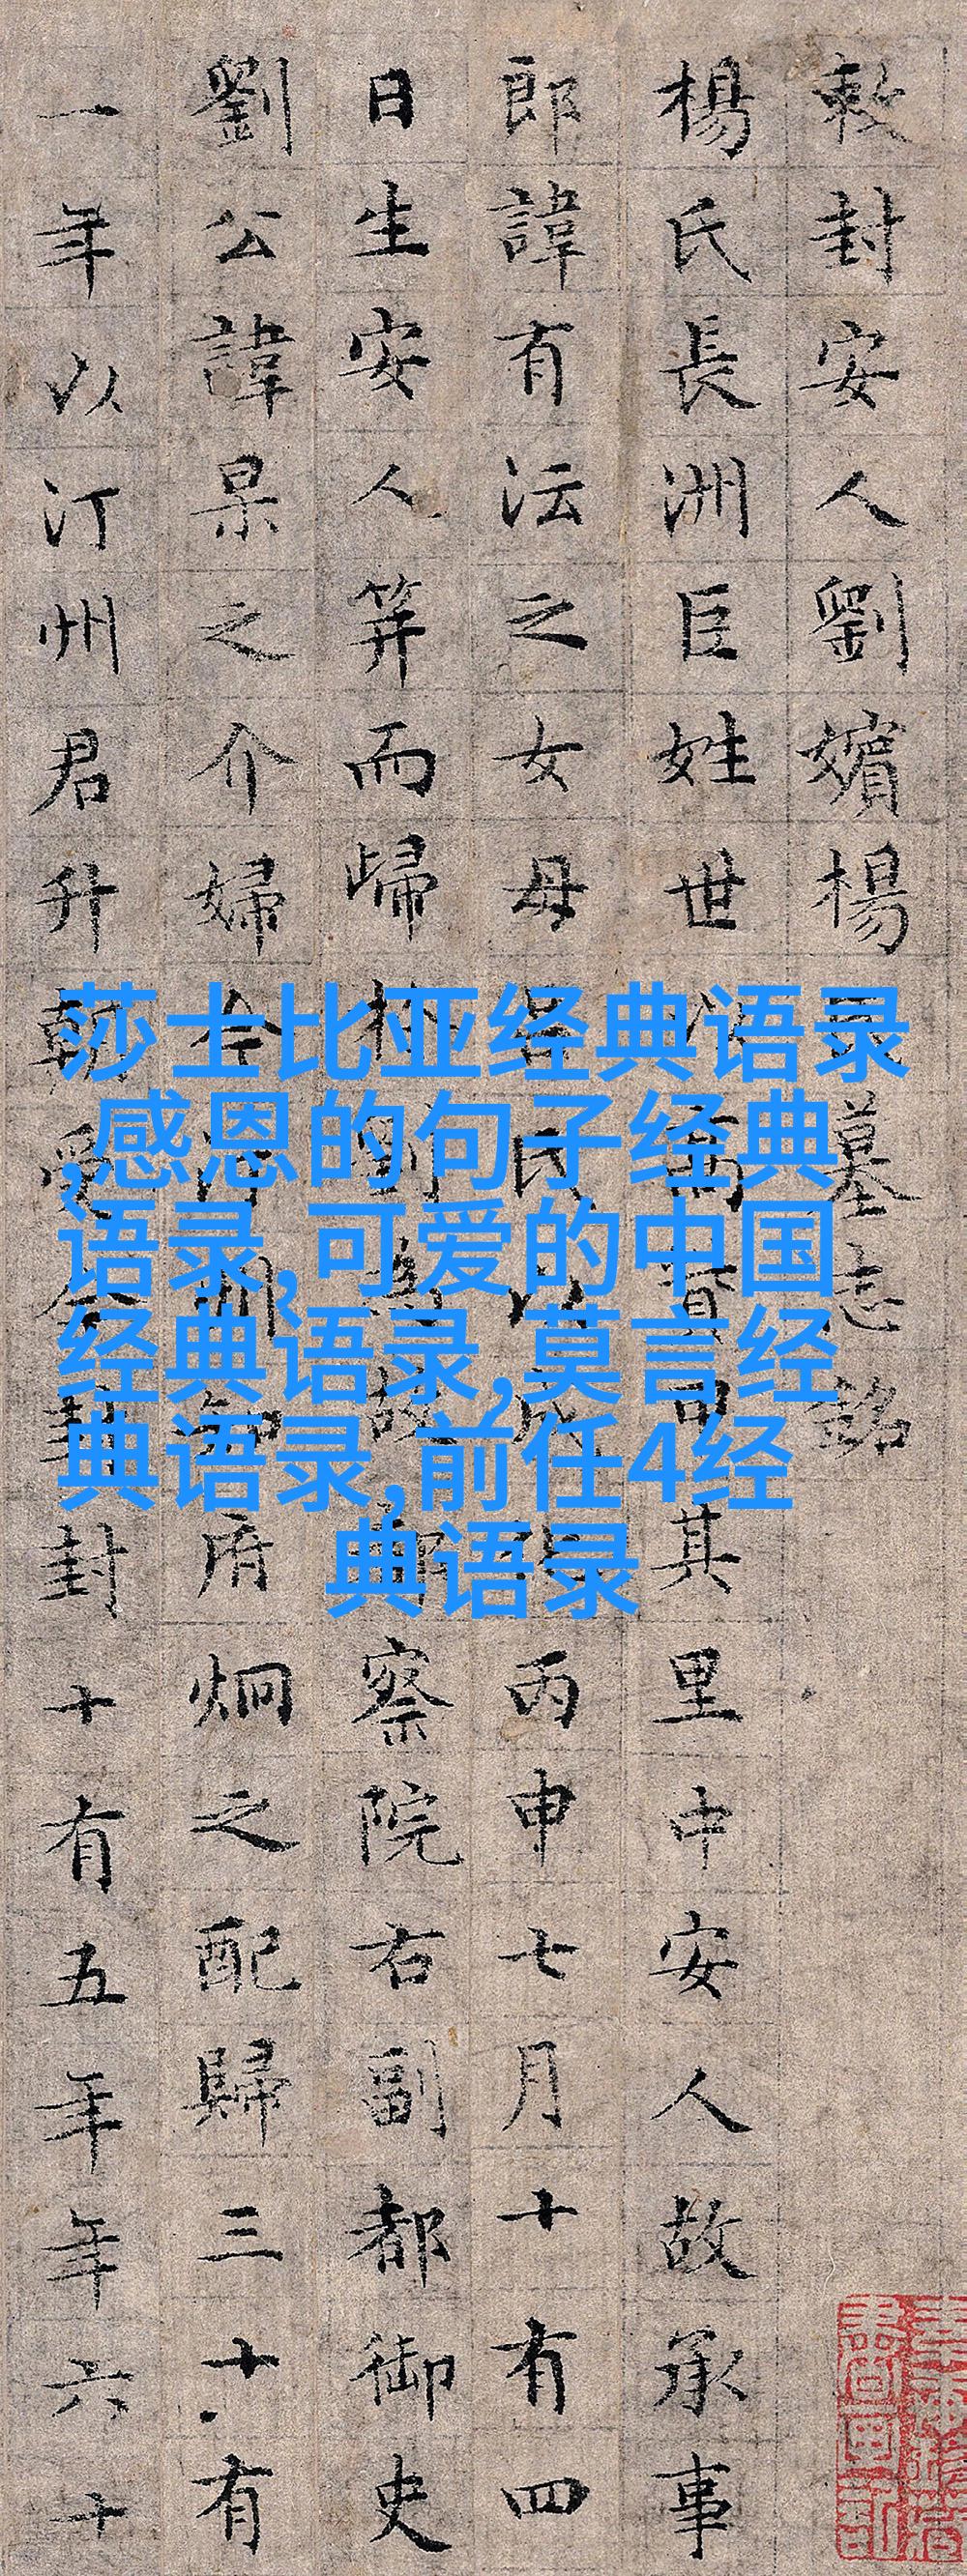 敕封安人劉嬪楊墓志銘
楊氏長洲巨姓世高其里中安人故承事
郎諱有沄之女母氏以成丙申七月十有四
日生安人笄而歸劉故都察院右副都御史
劉公諱杲之介婦今汀州知府炯之配歸三十有
一年以汀州君升朝受今封封十有五年年六十
莎士比亚经典语录
,感恩的句子经典
语录,可爱的中国
经典语录,莫言经
典语录,前任4经
典语录